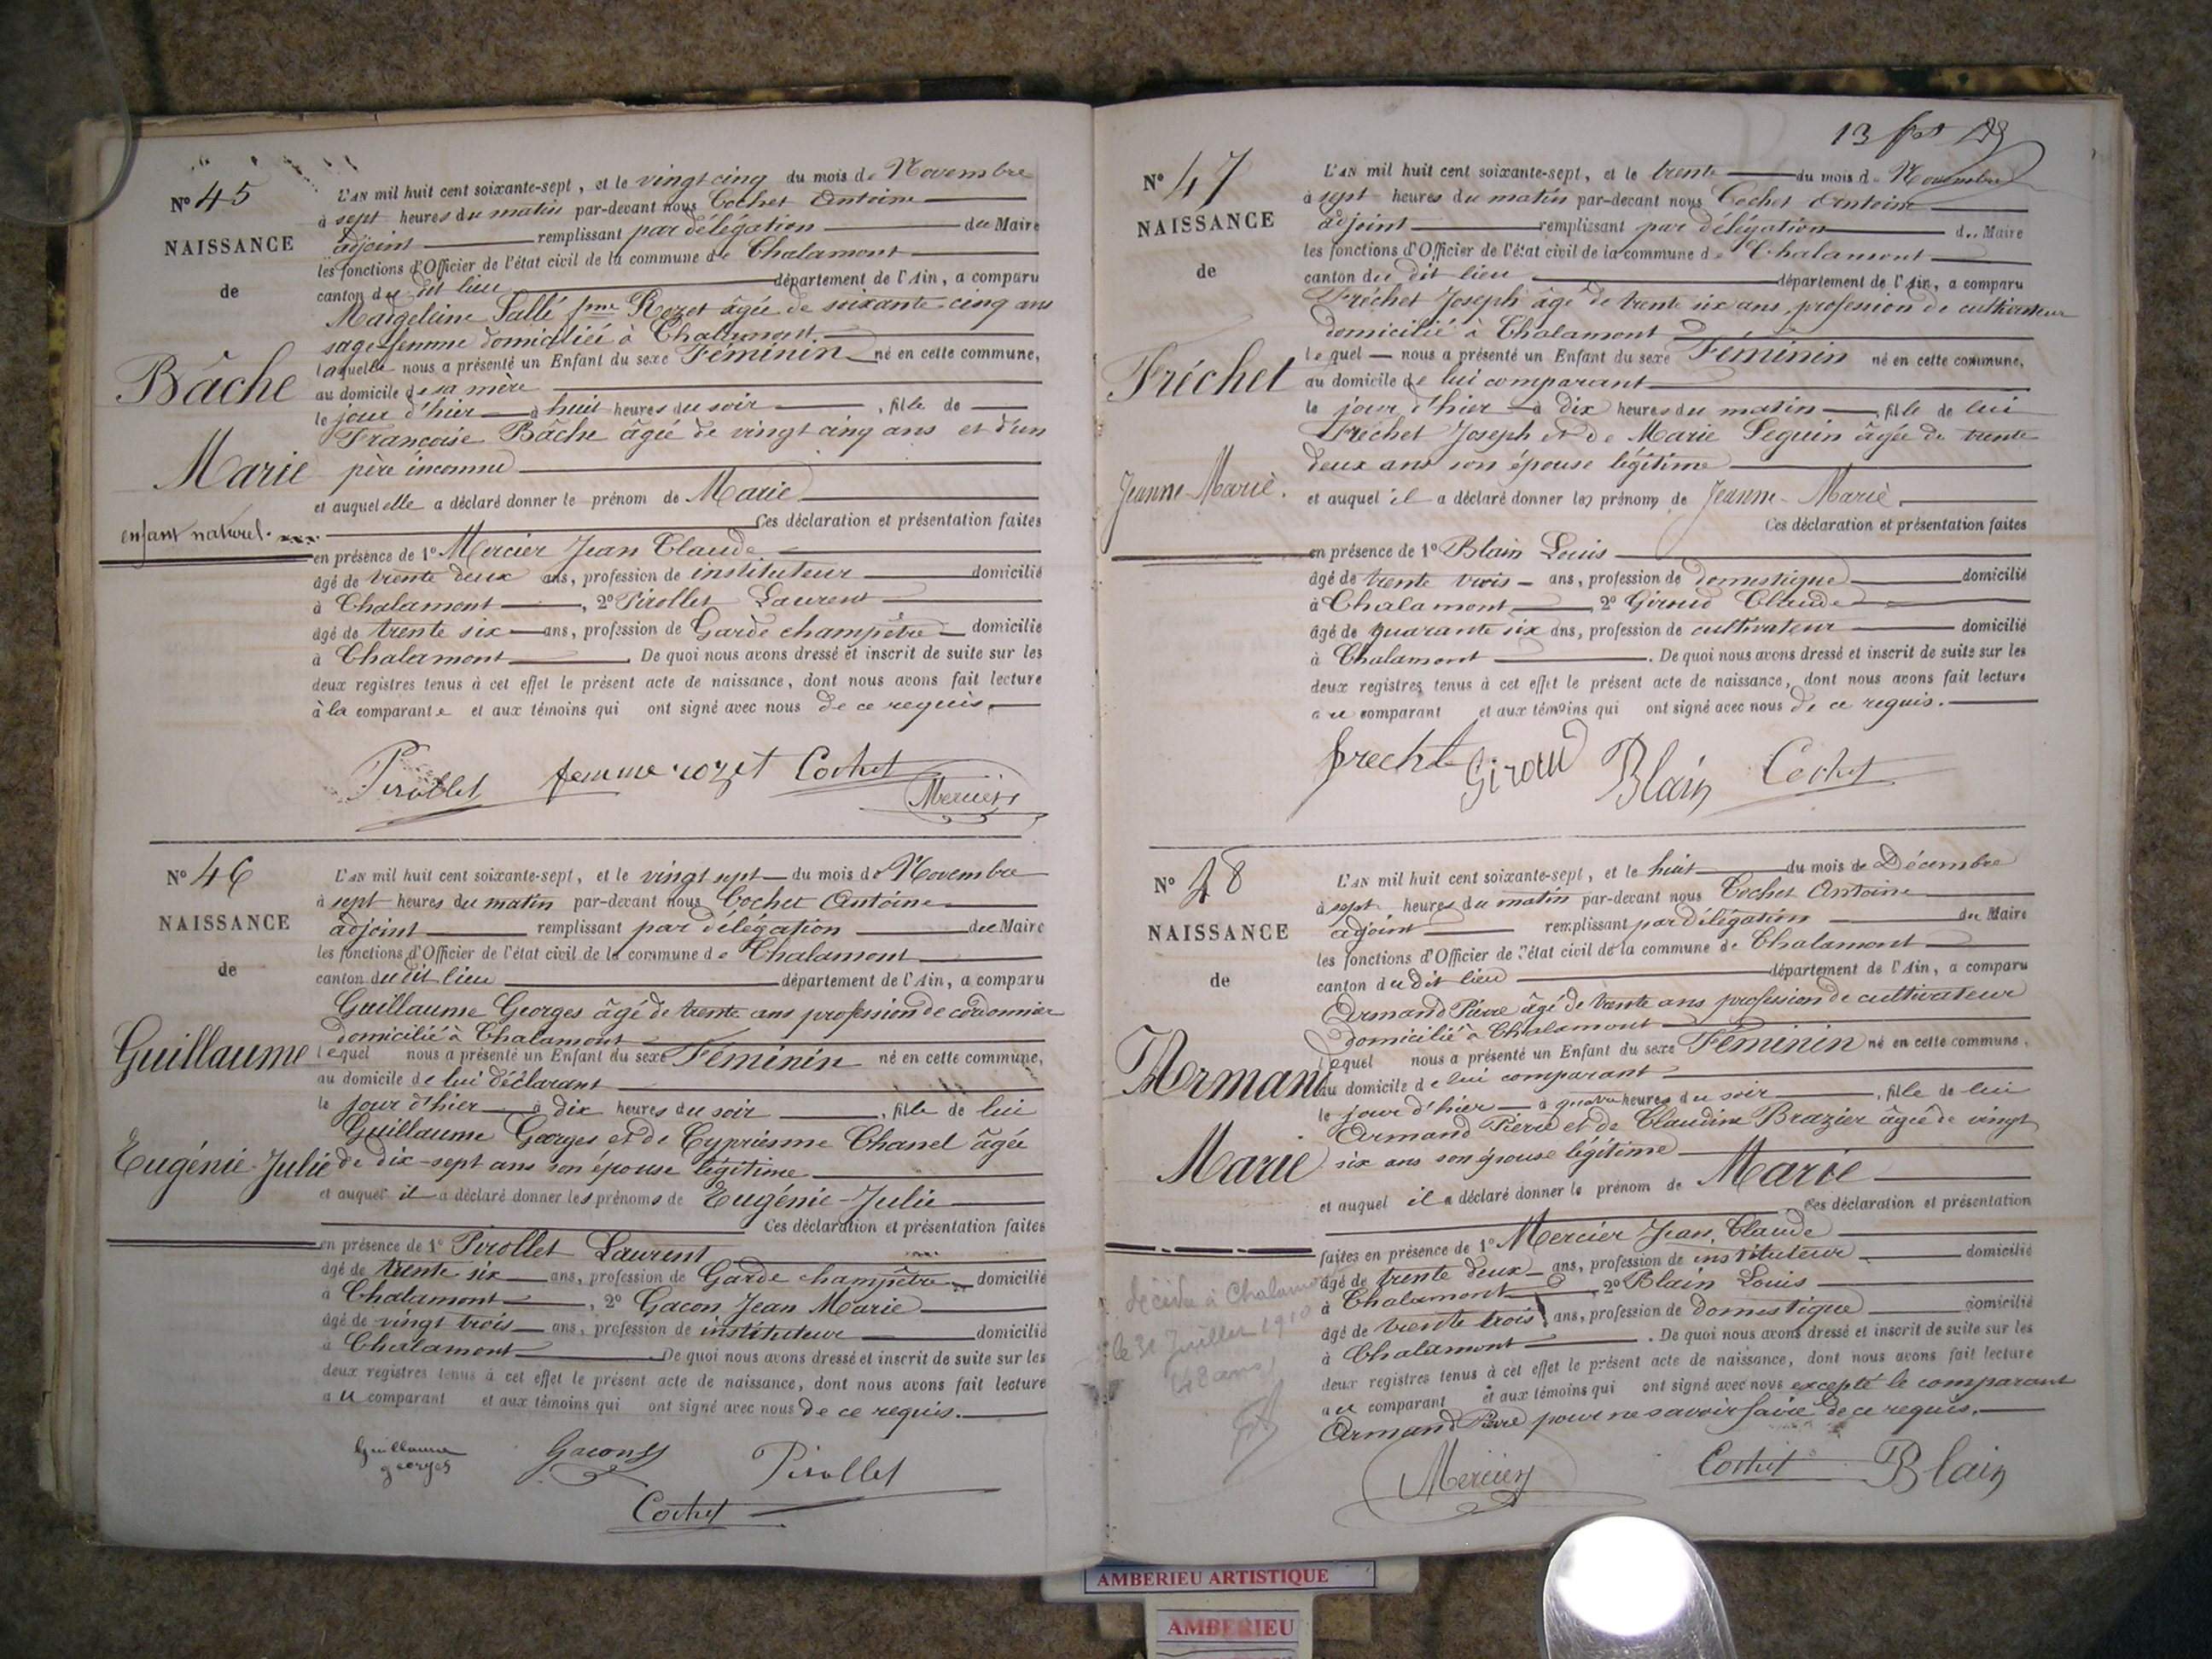 N° 45
NAISSANCE
de
Bâche
Marie
enfant naturel.
L'AN mil huit cent soixante-sept, et le vingt cinq du mois de Novembre
à sept heures du matin par-devant nous Cochet Antoine
adjoint remplissant par délégation du Maire
les fonctions d'Officier de l'état civil de la commune de Chalamont
canton du dit lieu département de l'Ain, a comparu
Margeleine Sallé fme Rozet âgée de soixante cinq ans
sage-femme domiciliée à Chalamont
laquelle nous a présenté un Enfant du sexe Féminin né en cette commune,
au domicile de sa mère
le jour d'hier à huit heures du soir, fille de
Françoise Bâche âgée de vingt cinq ans et d'un
père inconnu
et auquel elle a déclaré donner le prénom de Marie
Ces déclaration et présentation faites
en présence de 1° Mercier Jean Claude
âgé de trente deux ans, profession de instituteur domicilié
à Chalamont, 2° Pirollet Laurent
âgé de trente six ans, profession de Garde champêtre domicilié
à Chalamont. De quoi nous avons dressé et inscrit de suite sur les
deux registres tenus à cet effet le présent acte de naissance, dont nous avons fait lecture
à la comparante et aux témoins qui ont signé avec nous de ce requis.
Pirollet femme rozet Cochet
Mercier
N° 46
NAISSANCE
de
Guillaume
Eugénie-Julie
L'AN mil huit cent soixante-sept, et le vingt sept du mois de Novembre
à sept heures du matin par-devant nous Cochet Antoine
adjoint remplissant par délégation du Maire
les fonctions d'Officier de l'état civil de la commune de Chalamont
canton du dit lieu département de l'Ain, a comparu
Guillaume Georges âgé de trente ans profession de cordonnier
domicilié à Chalamont
lequel nous a présenté un Enfant du sexe Féminin né en cette commune,
au domicile de lui déclarant
le jour d'hier à dix heures du soir, fille de lui
Guillaume Georges et de Cyprienne Chanel âgée
de dix-sept ans son épouse légitime
et auquel il a déclaré donner les prénoms de Eugénie-Julie
Ces déclaration et présentation faites
en présence de 1° Pirollet Laurent
âgé de trente six ans, profession de Garde champêtre domicilié
à Chalamont, 2° Gacon Jean Marie
âgé de vingt trois ans, profession de instituteur domicilié
à Chalamont De quoi nous avons dressé et inscrit de suite sur les
deux registres tenus à cet effet le présent acte de naissance, dont nous avons fait lecture
au comparant et aux témoins qui ont signé avec nous de ce requis.
Guillaume
georges
Gacon
Pirollet
Cochet
13
N° 47
NAISSANCE
de
Fréchet
Jeanne-Marie.
L'AN mil huit cent soixante-sept, et le trente du mois de Novembre
à sept heures du matin par-devant nous Cochet Antoine
adjoint remplissant par délégation du Maire
les fonctions d'Officier de l'état civil de la commune de Chalamont
canton du dit lieu département de l'Ain, a comparu
Fréchet Joseph âgé de trente six ans, profession de cultivateur
domicilié à Chalamont
lequel nous a présenté un Enfant du sexe Féminin né en cette commune,
au domicile de lui comparant
le jour d'hier à dix heures du matin, fille de lui
Fréchet Joseph et de Marie Seguin âgée de trente
deux ans son épouse légitime
et auquel il a déclaré donner les prénoms de Jeanne-Marie
Ces déclaration et présentation faites
en présence de 1° Blain Louis
âgé de trente trois ans, profession de domestique domicilié
à Chalamont, 2° Giroud Claude
âgé de quarante six ans, profession de cultivateur domicilié
à Chalamont. De quoi nous avons dressé et inscrit de suite sur les
deux registres tenus à cet effet le présent acte de naissance, dont nous avons fait lecture
au comparant et aux témoins qui ont signé avec nous de ce requis.
frechet Giroud Blain Cochet
N° 48
NAISSANCE
de
Armand
Marie
L'AN mil huit cent soixante-sept, et le huit du mois de Décembre
à sept heures du matin par-devant nous Cochet Antoine
adjoint remplissant par délégation du Maire
les fonctions d'Officier de l'état civil de la commune de Chalamont
canton du dit lieu département de l'Ain, a comparu
Armand Pierre âgé de trente ans profession de cultivateur
domicilié à Chalamont
lequel nous a présenté un Enfant du sexe Féminin né en cette commune,
au domicile de lui comparant
le jour d'hier à quatre heures du soir, fille de lui
Armand Pierre et de Claudine Brazier âgée de vingt
six ans son épouse légitime
et auquel il a déclaré donner le prénom de Marie
Ces déclaration et présentation
faites en présence de 1° Mercier Jean Claude
âgé de trente deux ans, profession de instituteur domicilié
à Chalamont 2° Blain Louis
âgé de trente trois ans, profession de domestique domicilié
à Chalamont. De quoi nous avons dressé et inscrit de suite sur les
deux registres tenus à cet effet le présent acte de naissance, dont nous avons fait lecture
au comparant et aux témoins qui ont signé avec nous excepté le comparant
Armand Pierre pour ne savoir faire de ce requis.
décédée à Chalamont
le 31 Juillet 1910
Mercier Cochet Blain
AMBERIEU ARTISTIQUE
AMBERIEU